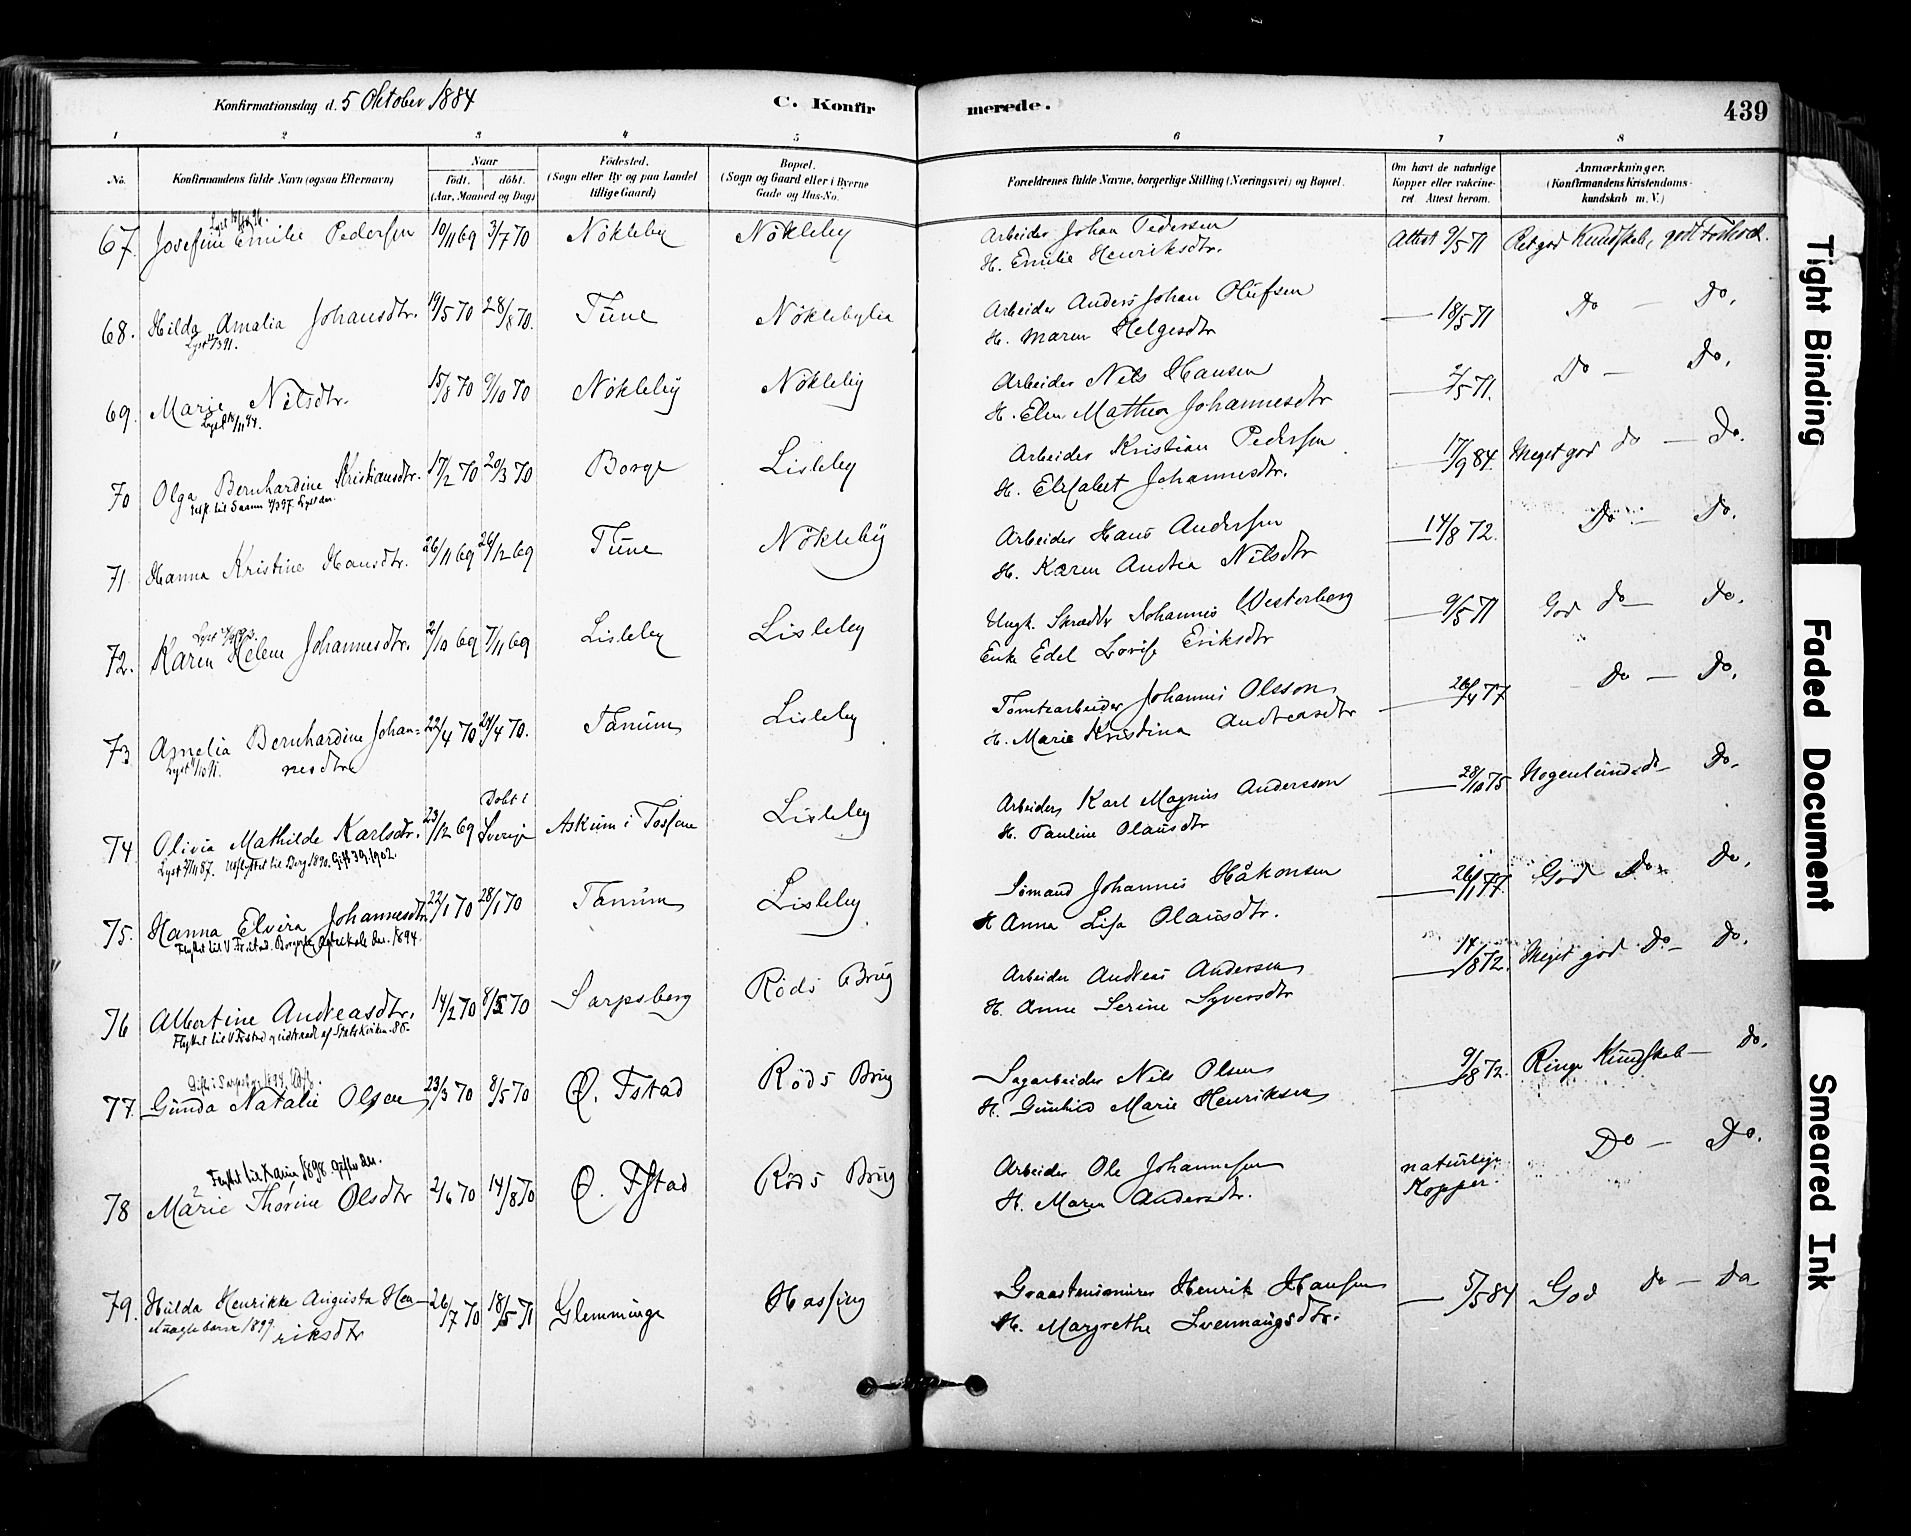 Konfirmationsdag d. 5 Oktober 1884 C. Konfirmerede. 439
1 2 3 4 5 6 7 8
No. Konfirmandens fulde Navn (ogsaa Efternavn) Naar födt. döbt. (Aar, Maaned og Dag) Födested. (Sogn eller By og paa Landet tillige Gaard) Bopæl. (Sogn og Gaard eller i Byerne Gade og Hus-No. Forældrenes fulde Navne, borgerlige Stilling (Næringsvei) og Bopæl. Om havt de naturlige Kopper eller vakcineret. Attest herom. Anmærkninger. (Konfirmandens Kristendomskundskab m. V.)
67. Josefine Emilie Pedersen 10/11 69 3/7 70 Nökleby Nökleby Arbeider Johan Pedersen Attest 9/5 71 Ret god Kundskab, godt Forhold.
H. Emilie Henriksdtr.
68. Hilda Amalia Johansdtr. 19/5 70 28/8 70. Tune Nöklebylia Arbeider Anders Johan Olufsen 18/5 71 Do — Do.
H. Maren Helgesdtr
69. Marie Nilsdtr. 15/8 70 9/10 70 Nökleby Nökleby Arbeider Nils Hansen 2/5 71. Do — Do.
H. Elen Mathea Johannesdtr
70 Olga Bernhardine Kristiansdtr. 17/2 70 20/3 70 Borge Lisleby Arbeider Kristian Pedersen 17/9 84. Meget god do — Do.
H. Elisabet Johannesdtr.
71. Hanna Kristine Hansdtr. 26/11 69 26/12 69 Tune Nökleby Arbeider Hans Andersen 14/8 72. Do — Do.
H. Karen Andrea Nilsdtr
72. Karen Helene Johannesdtr. 2/10 69 7/11 69 Lisleby Lisleby Ungk. Skrædder Johannes Westerberg 9/5 71 God do — Do.
Enke Edel Lovise Eriksdtr
73 Amelia Bernhardine Johan= 22/4 70 24/4 70. Tanum Lisleby Tomtearbeider Johannes Olsson 26/4 77 Do — Do.
nesdtr H. Marie Kristina Andreasdtr
74 Olivia Mathilde Karlsdtr. 23/12 69 Döbt i Sverige Askum i Tossene Lisleby Arbeider Karl Magnus Andersson 28/10 75 Nogenlunde do — Do.
Udflyttet til Berg 1890. Gift 3.9.1902. H. Pauline Olausdtr
75. Hanna Elvira Johannesdtr 22/1 70 28/1 70 Tanum Lisleby Sömand Johannes Håkonsen 26/1 77 God Do. Do.
H Anna Lisa Olausdtr.
76 Albertine Andreasdtr. 14/2 70 8/5 70 Sarpsborg Röds Brug Arbeider Andreas Andersen 14/8 72. Meget god Do — Do.
Flyttet til V Frstad og udtraadt af Statskirken 85. H. Anne Serine Syversdtr
77. Gunda Natalie Olsen 23/3 70 8/5 70 Ø. Fstad Röds Brug Sagarbeider Nils Olsen 9/8 72. Ringe Kundskab — Do.
H. Gunhild Marie Henriksen
Flyttet til
78 Marie Thorine Olsdtr 2/6 70 14/8 70 Ø. Fstad Röds Brug Arbeider Ole Johannesen naturlige Kopper. Do — Do.
H. Maren Andersdtr.
79. Hulda Henrikke Augusta Hen- 26/7 70 18/5 71 Glemminge Hassing Henrik Hansen 5/5 84 God do — Do
1899. riksdtr H. Margrethe Svenningsdtr.
Tight Binding
Faded Document
Smeared Ink